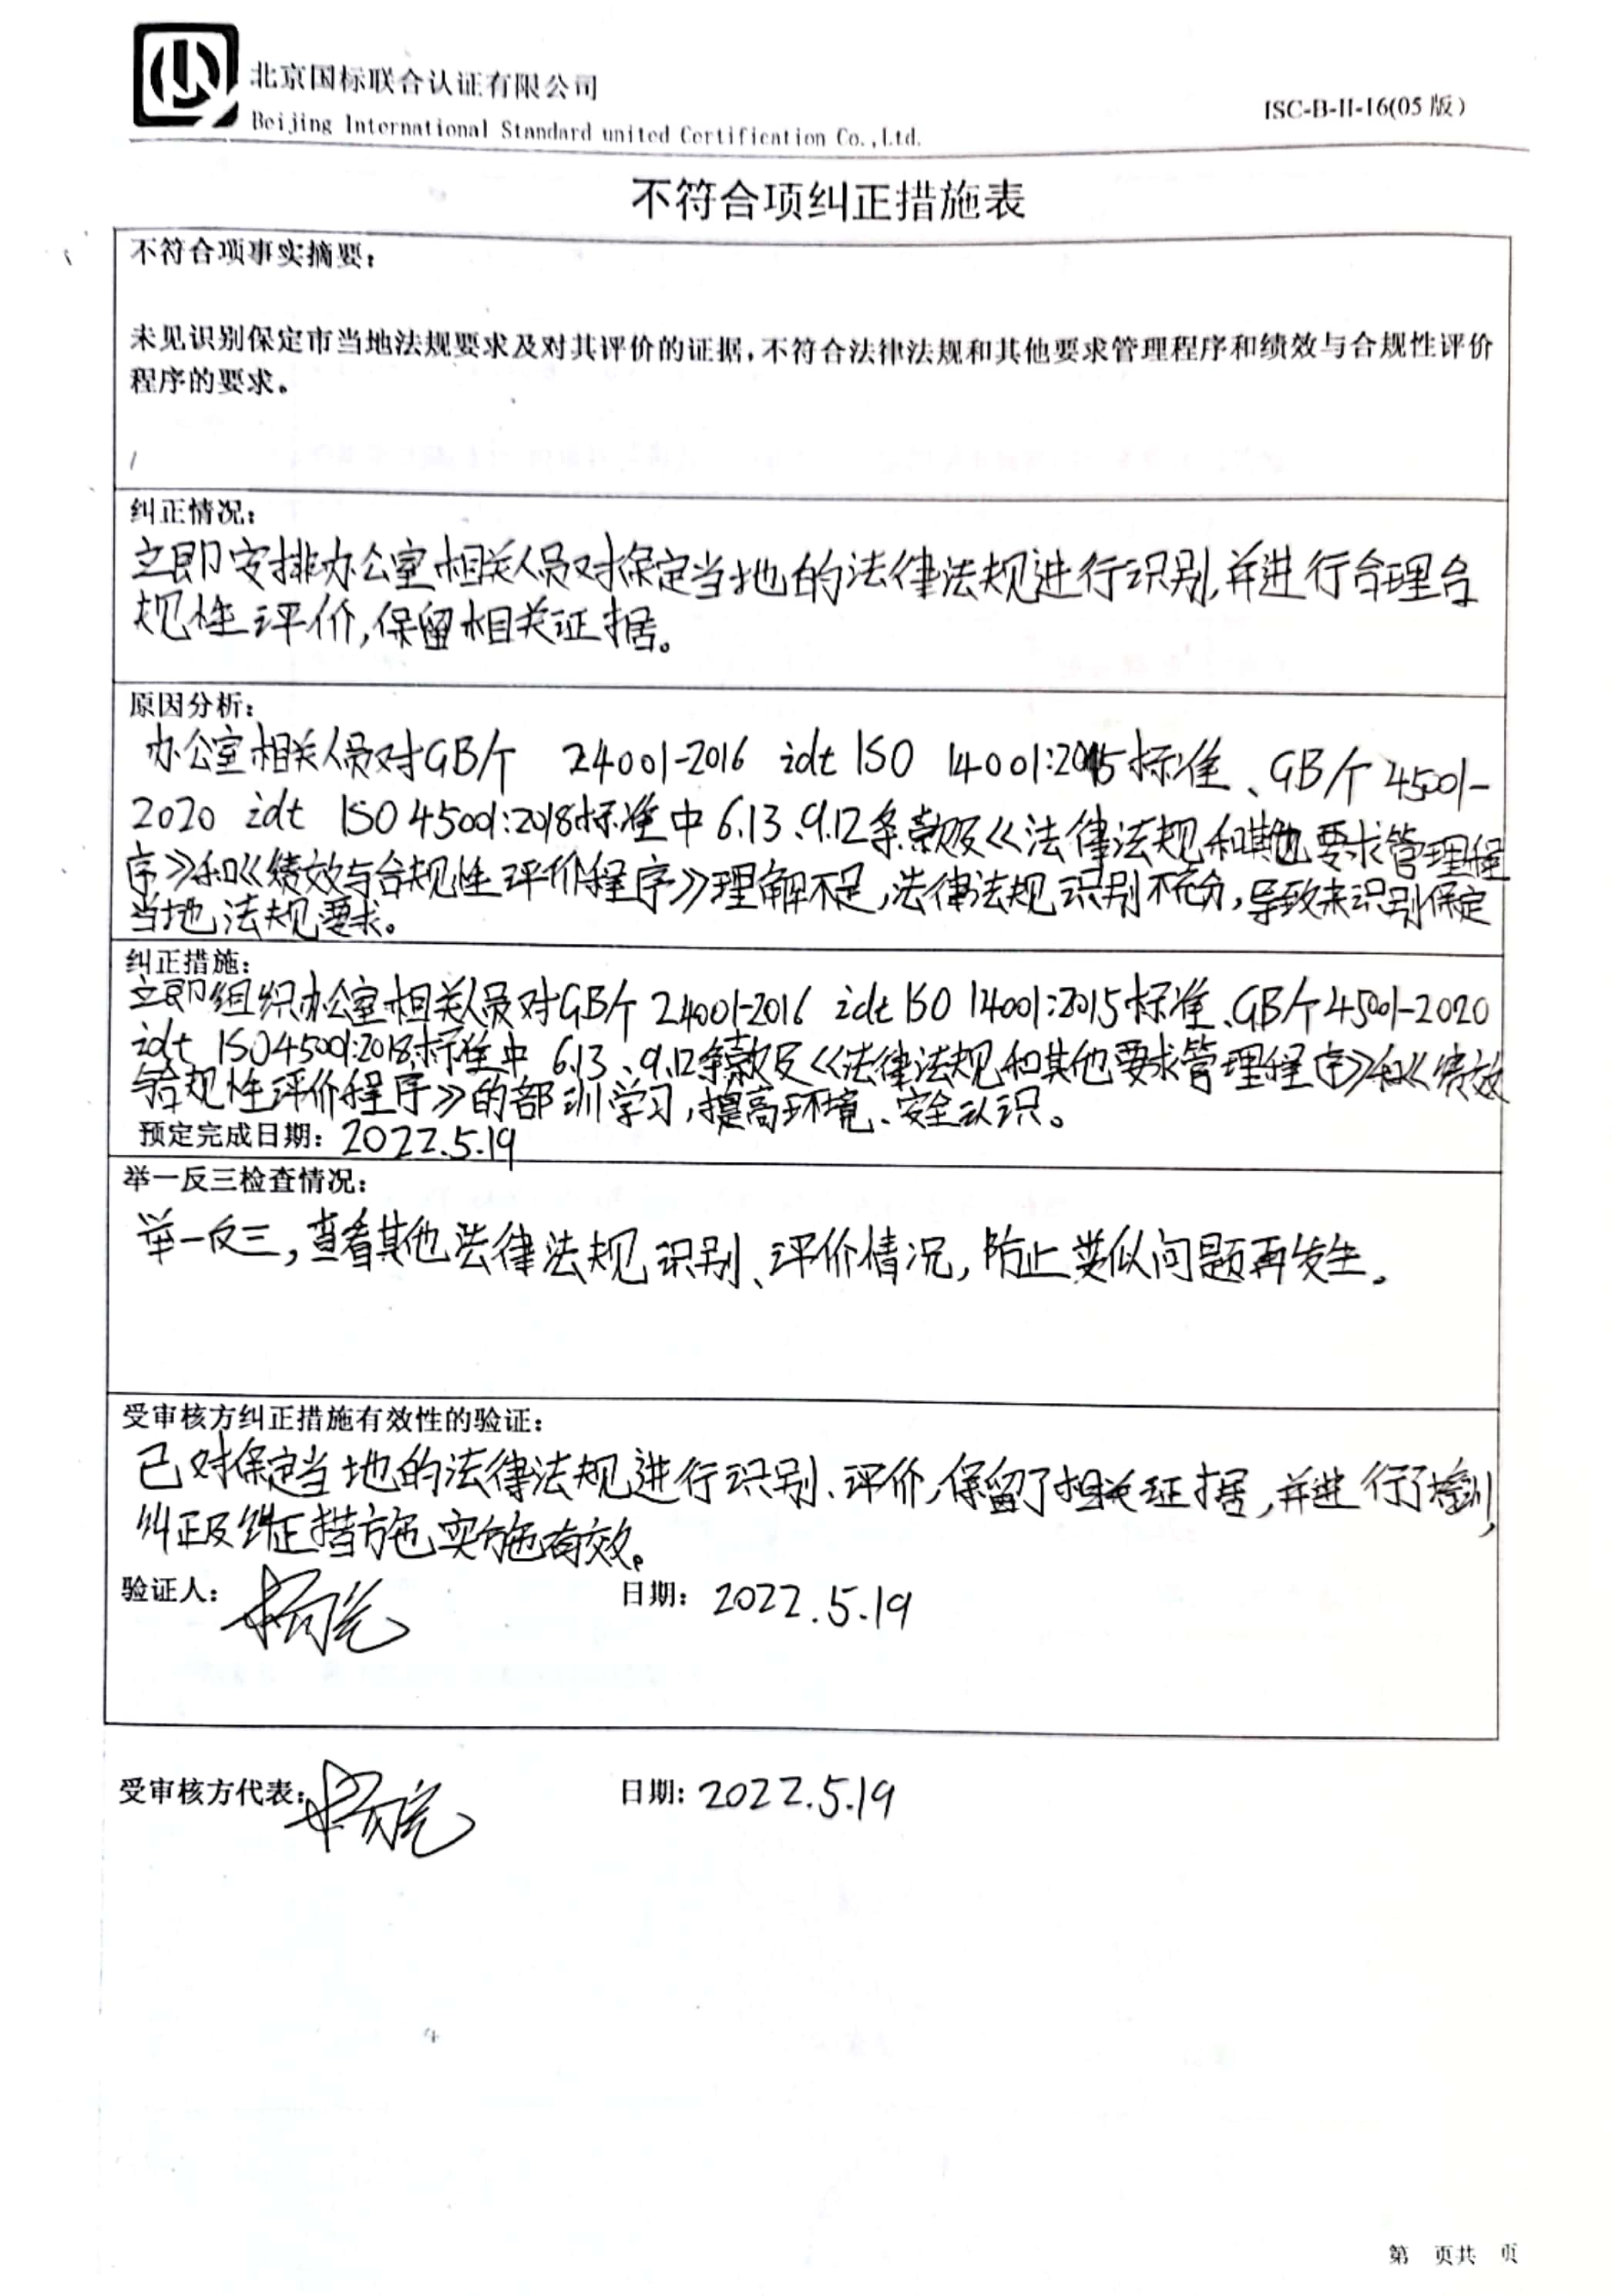 北京国标联合认证有限公司
Beijing International Standard united Certification Co.,Ltd.
ISC-B-II-16(05版)
不符合项纠正措施表
不符合项事实摘要：
未见识别保定市当地法规要求及对其评价的证据，不符合法律法规和其他要求管理程序和绩效与合规性评价
程序的要求。
纠正情况：
立即安排办公室相关人员对保定当地的法律法规进行识别，并进行合理合
规性评价，保留相关证据。
原因分析：
办公室相关人员对GB/T 24001-2016 idt ISO 14001:2015标准、GB/T 45001-
2020 idt ISO 45001:2018标准中6.1.3、9.1.2条款及《法律法规和其他要求管理程
序》和《绩效与合规性评价程序》理解不足，法律法规识别不充分，导致未识别保定
当地法规要求。
纠正措施：
立即组织办公室相关人员对GB/T 24001-2016 idt ISO 14001:2015标准、GB/T 45001-2020
idt ISO45001:2018标准中 6.1.3、9.1.2条款及《法律法规和其他要求管理程序》和《绩效
与合规性评价程序》的部训学习，提高环境、安全认识。
预定完成日期：2022.5.19
举一反三检查情况：
举一反三，查看其他法律法规识别、评价情况，防止类似问题再发生。
受审核方纠正措施有效性的验证：
已对保定当地的法律法规进行识别、评价，保留了相关证据，并进行了培训，
纠正及纠正措施实施有效。
验证人： 日期：2022.5.19
受审核方代表： 日期：2022.5.19
第 页共 页